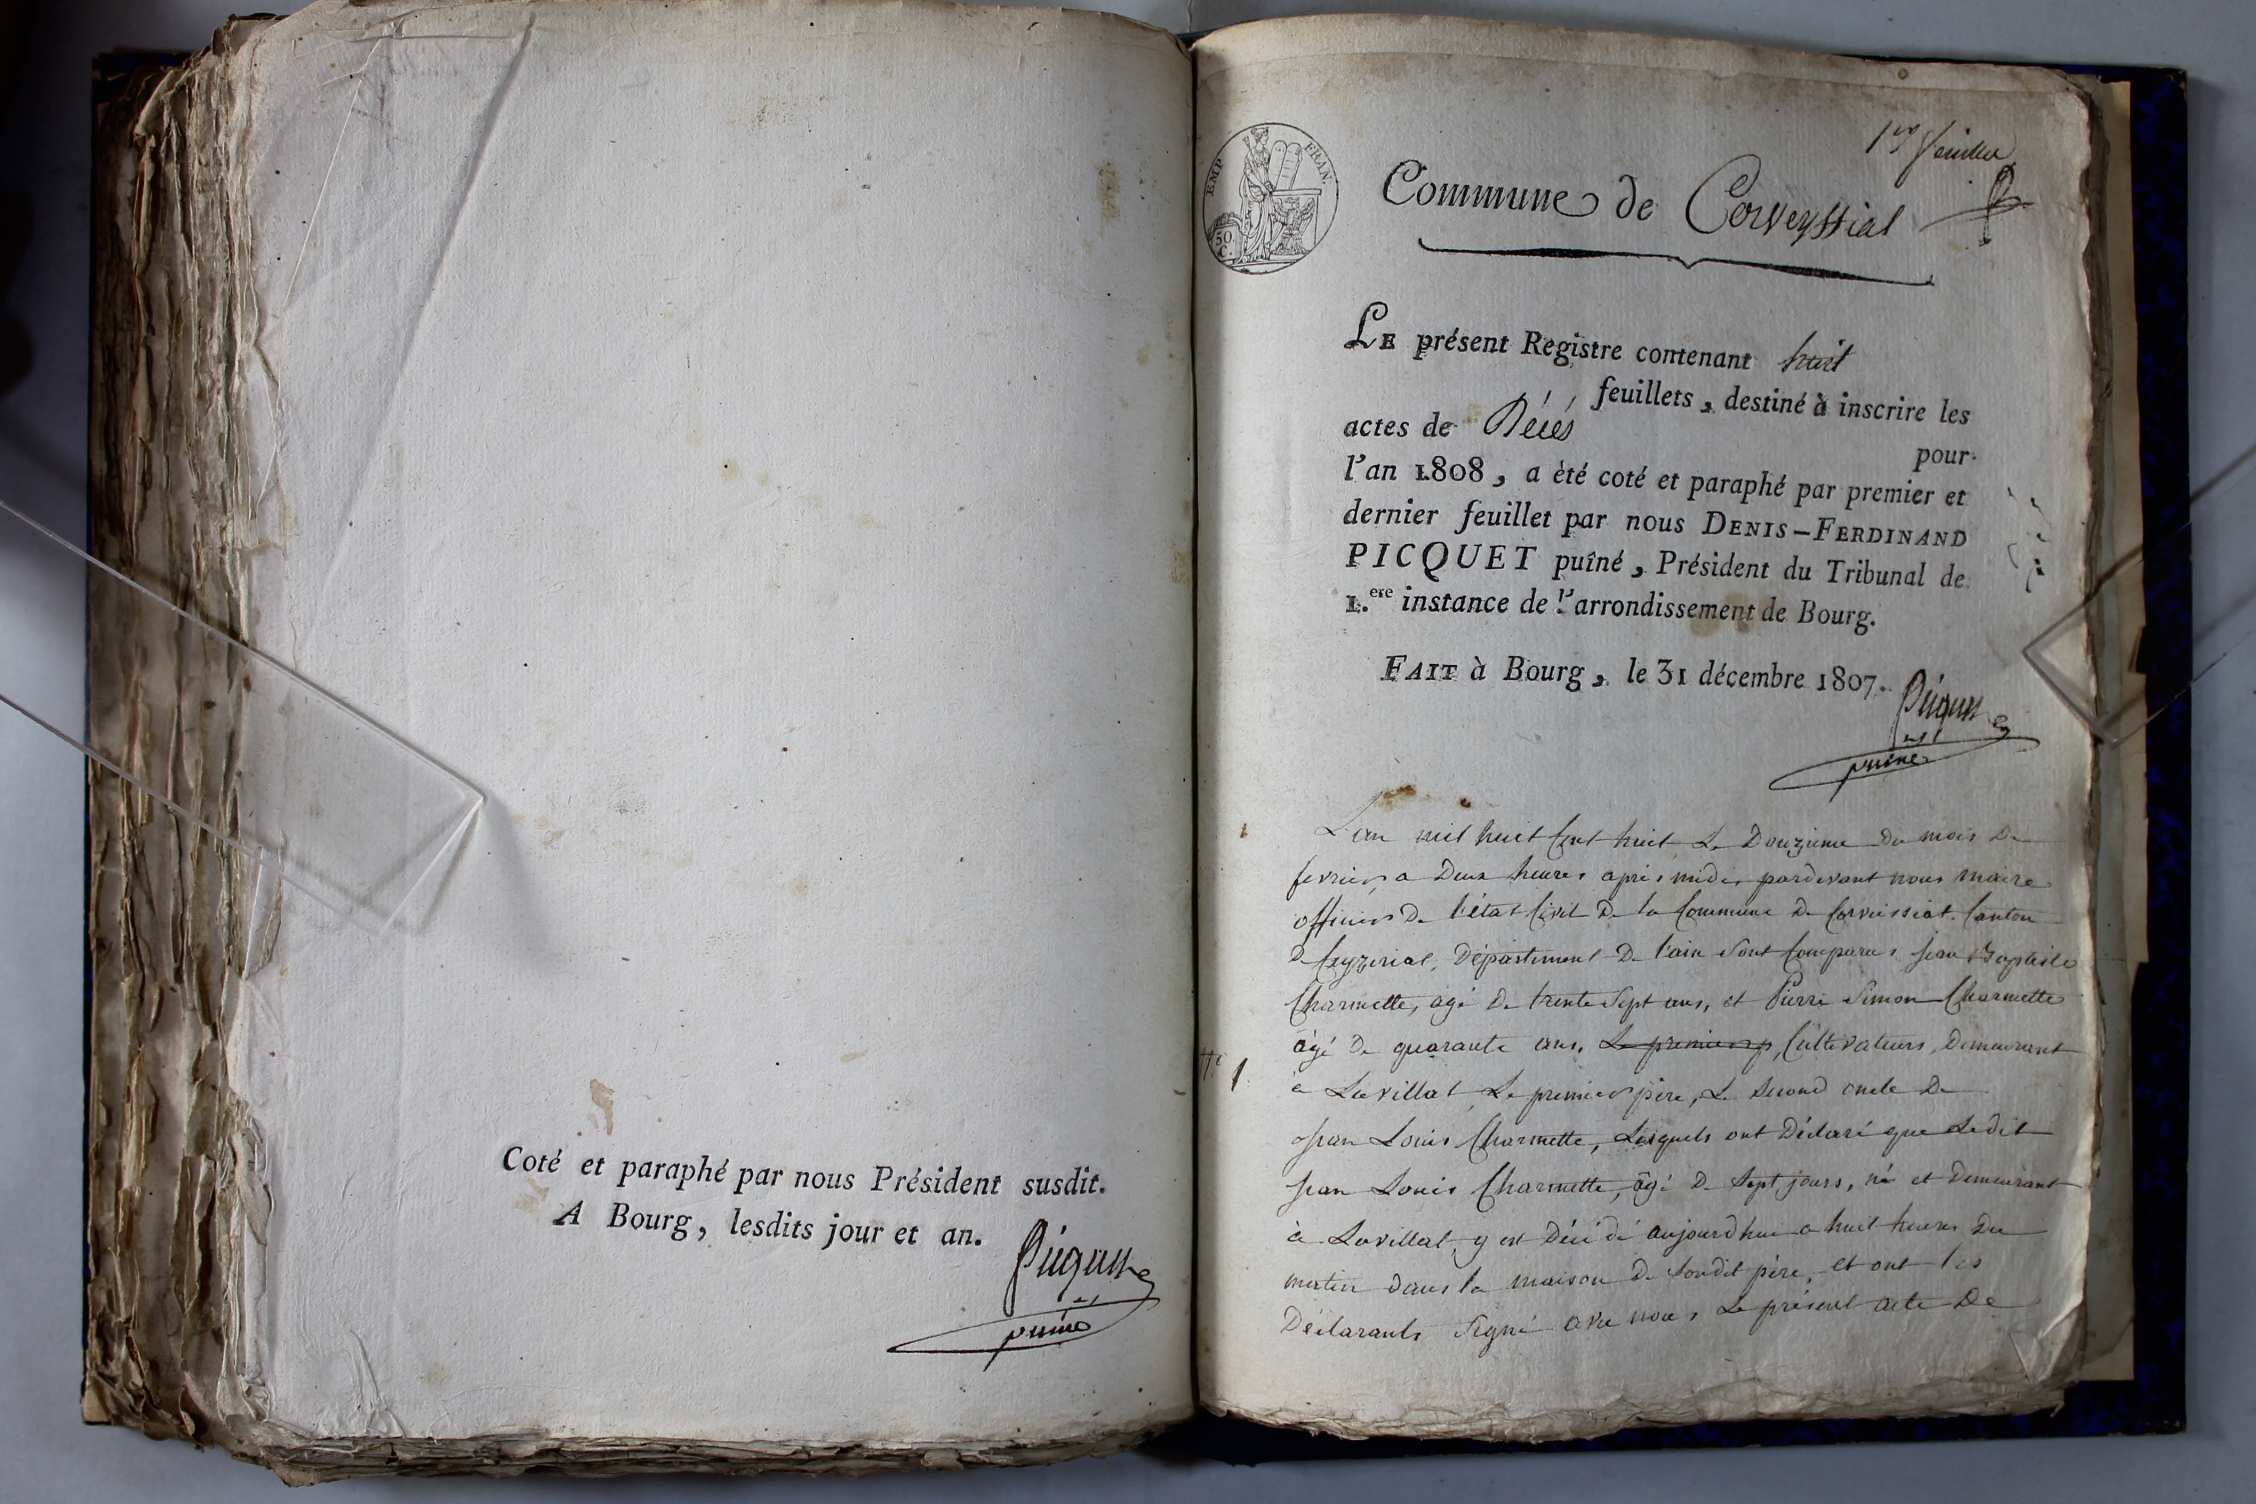 Coté et paraphé par nous Président susdit.
A Bourg, lesdits jour et an.
Picquet
puiné
1er feuillet
EMP. FRAN.
50 C.
Commune de Corveyssiat
LE présent Registre contenant huit
feuillets, destiné à inscrire les
actes de Décés
pour
l'an 1808, a èté coté et paraphé par premier et
dernier feuillet par nous DENIS-FERDINAND
PICQUET puîné, Président du Tribunal de
1.ere instance de l'arrondissement de Bourg.
FAIT à Bourg, le 31 décembre 1807.
Picquet
puiné
L'an mil huit Cent huit Le Douzieme du mois De
fevrier, a Deux heures après midi, pardevant nous maire
officier De l'état Civil De la Commune De Corveissiat. Canton
De Ceyzeriat, Département De l'ain sont Comparus jean Baptiste
Charmette, agé De trente Sept ans, et Pierre Simon Charmette
âgé De quarante ans, Le premier p, Cultivateurs, Demeurant
1 à Lavillat, Le premier père, Le Second oncle De
jean Louis Charmette, Lesquels ont Déclaré que Ledit
jean Louis Charmette, âgé De Sept jours, né et Demeurant
à Lavillat, y est Décédé aujourdhui a huit heures Du
matin dans la maison De Sondit père, et ont les
Déclarants Signé avec nous Le présent acte De